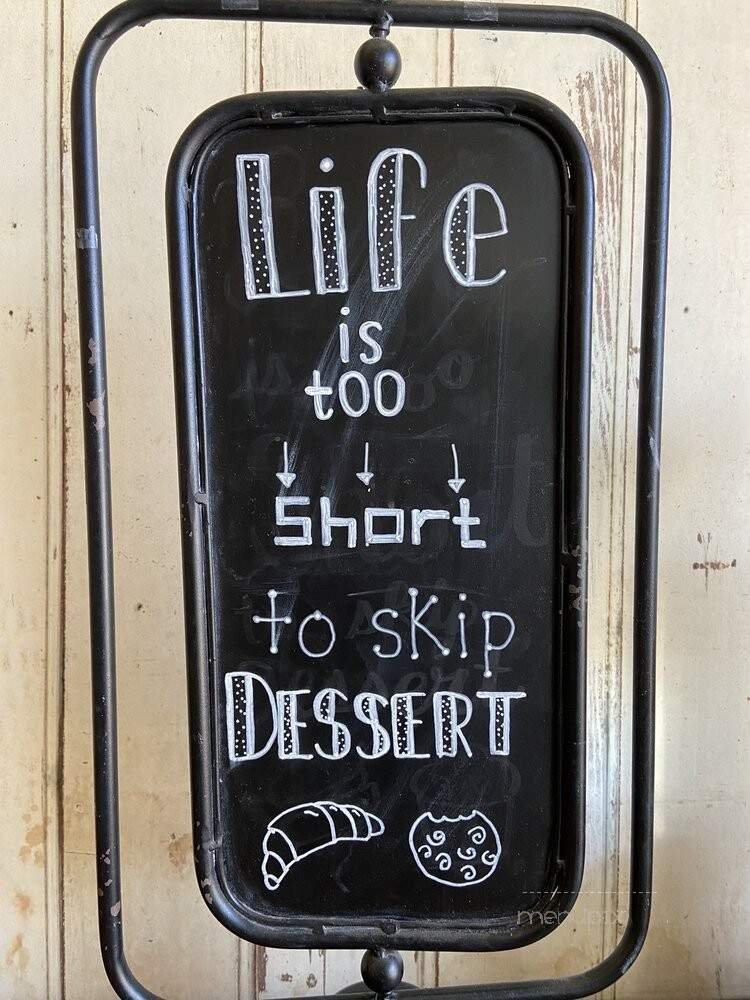 Life
is
too
Short
to skip
DESSERT